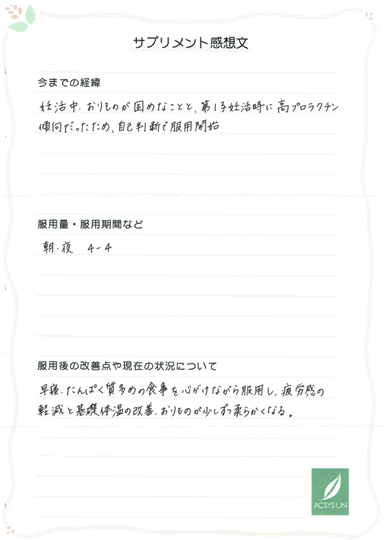 サプリメント感想文
今までの経緯
妊活中、おりものが固めなことと、第1子妊活時に高プロラクチン
傾向だったため、自己判断で服用開始
服用量・服用期間など
朝・夜 4-4
服用後の改善点や現在の状況について
早寝、たんぱく質多めの食事を心がけながら服用し、疲労感の
軽減と基礎体温の改善、おりものが少しずつ柔らかくなる。
ACSYSUN